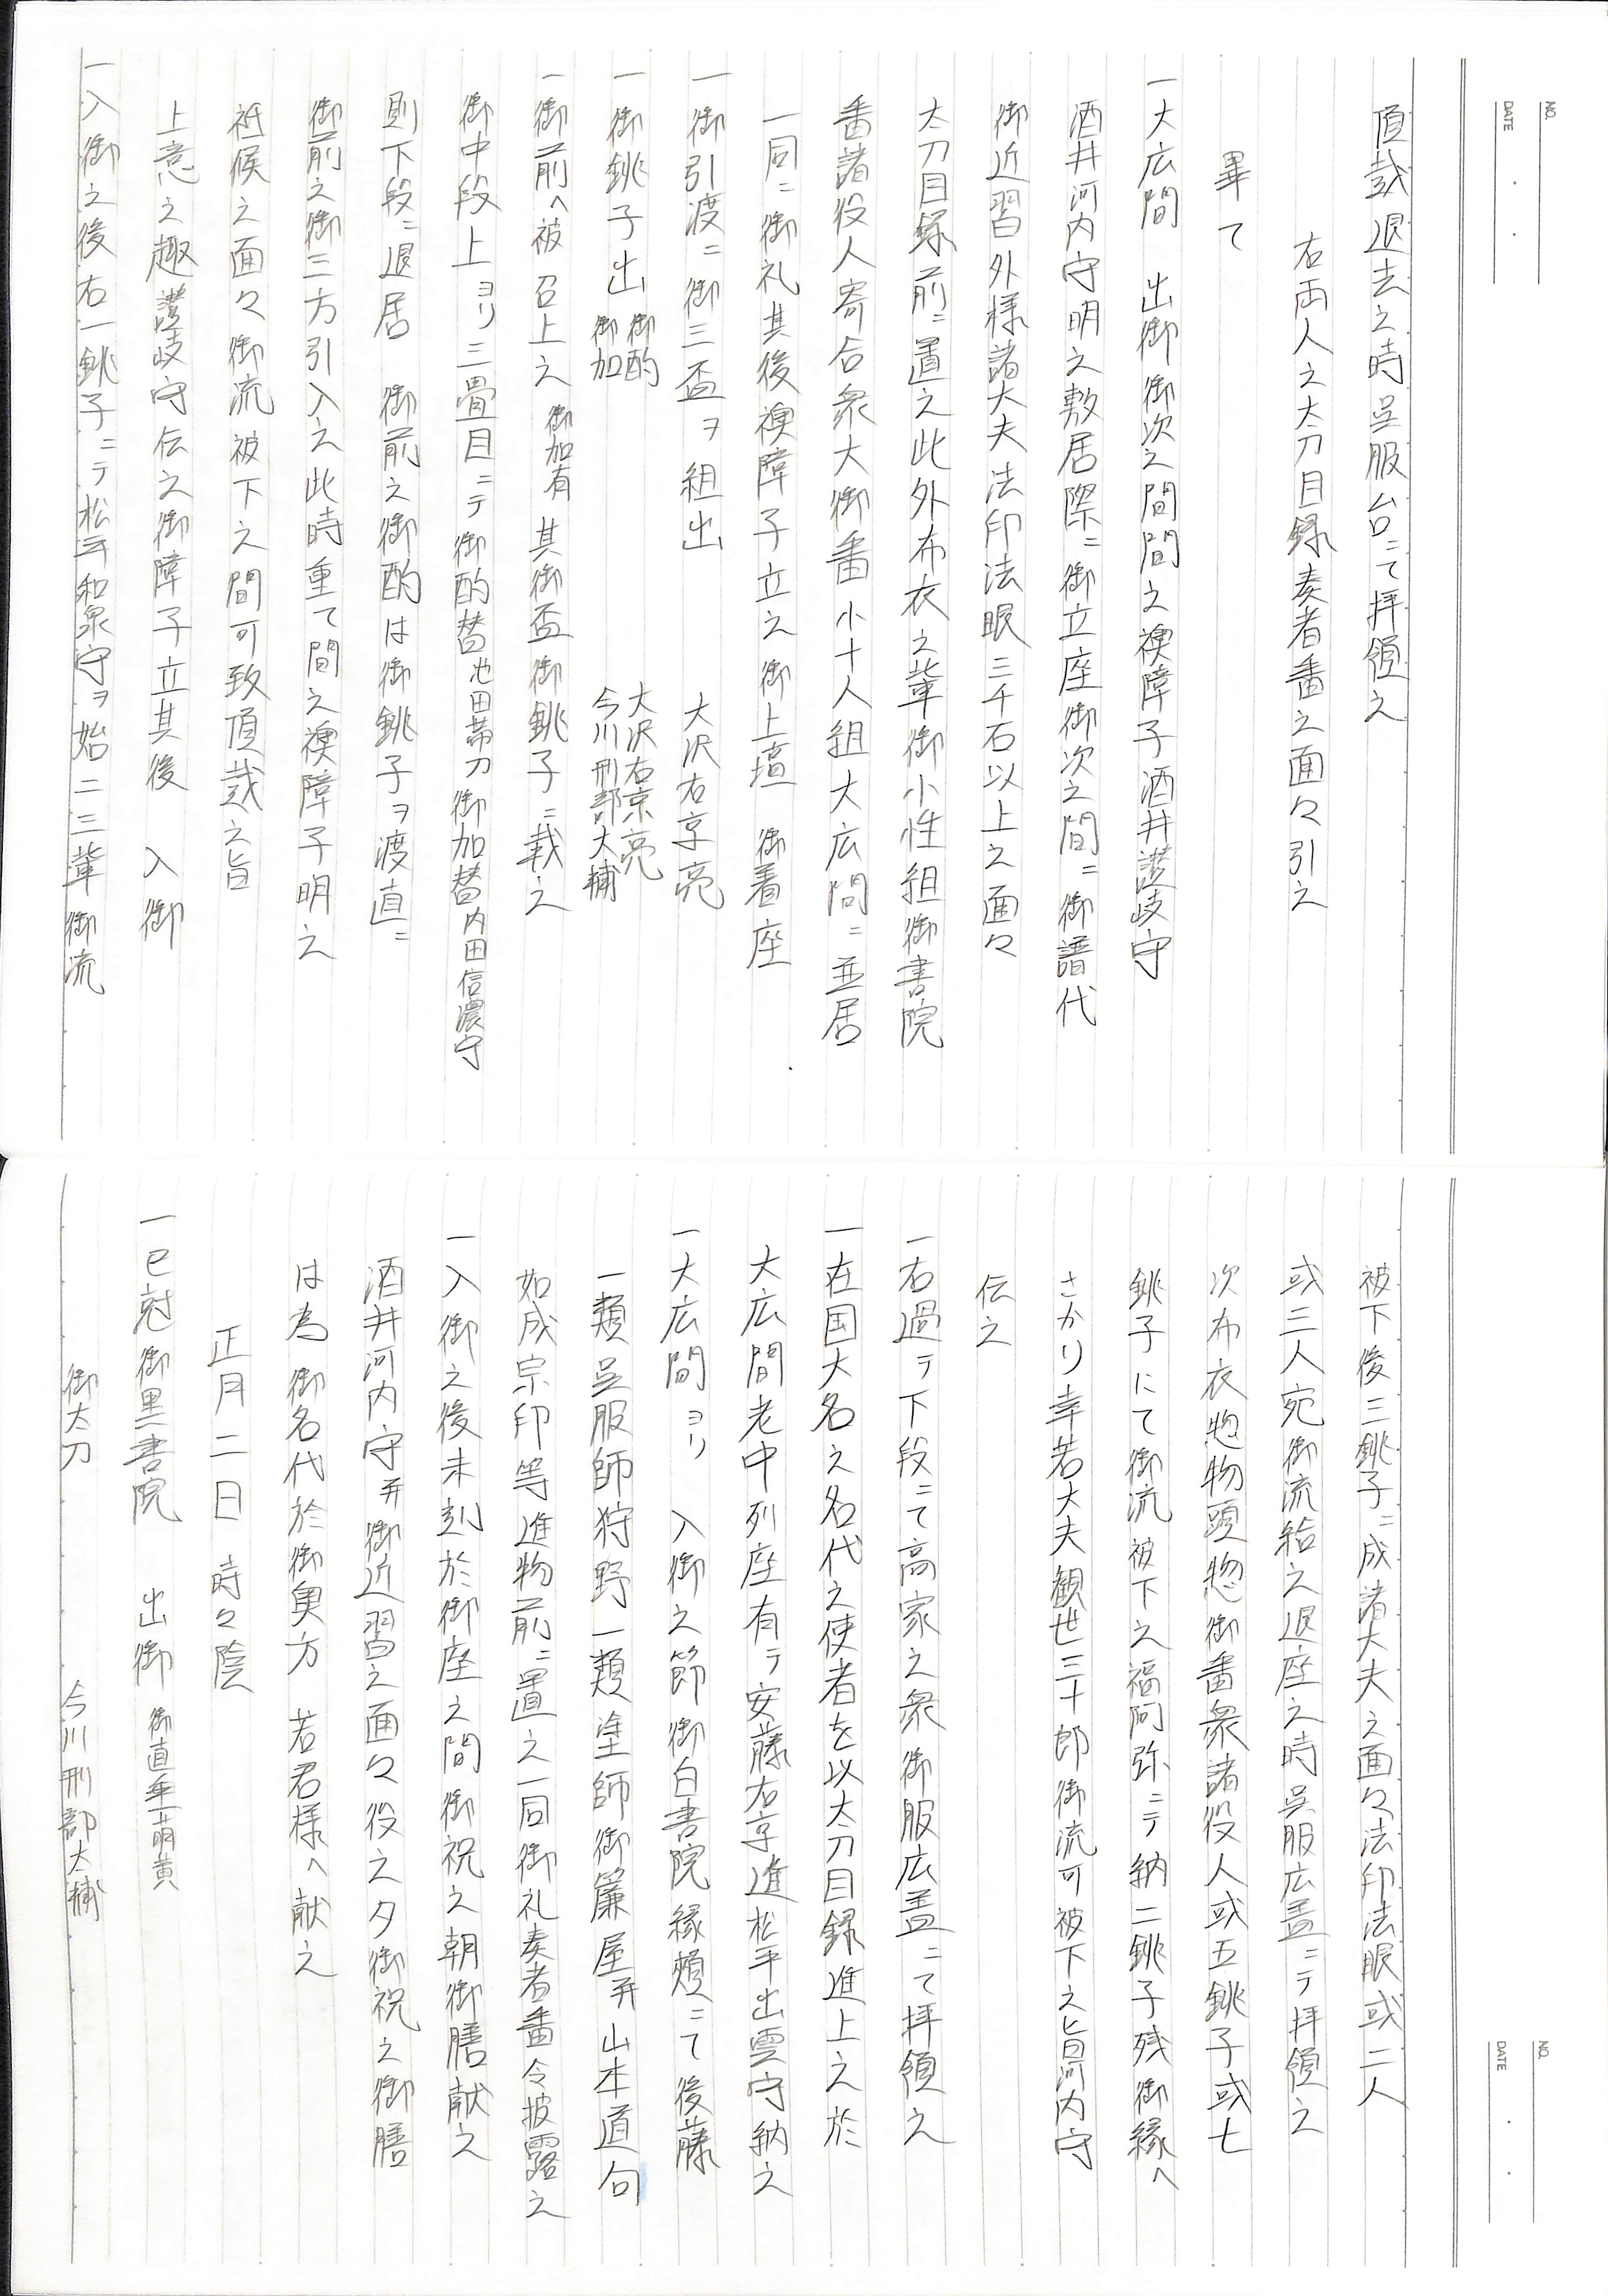 NO.
DATE
頂戴退去之時呉服台ニて拝領之
右両人之太刀目録奏者番之面々引之
畢て
一大広間　出御御次之間間之襖障子酒井讃岐守
酒井河内守明之敷居際ニ御立座御次之間ニ御譜代
御近習外様諸大夫法印法眼三千石以上之面々
太刀目録前ニ置之此外布衣之輩御小性組御書院
番諸役人寄合衆大御番小十人組大広間ニ並居
一同ニ御礼其後襖障子立之御上壇　御着座
一御引渡ニ御三盃ヲ組出　　大沢右京亮
一御銚子出　御酌　大沢右京亮
御加　今川刑部大輔
一御前へ被　召上之　御加有　其御盃御銚子ニ載之
御中段上ヨリ三畳目ニテ御酌替池田帯刀御加替内田信濃守
則下段ニ退居　御前之御酌は御銚子ヲ渡直ニ
御前之御三方引入之此時重て間之襖障子明之
祗候之面々御流被下之間可致頂戴之旨
上意之趣讃岐守伝之御障子立其後　入御
一入御之後右一銚子ニテ松平和泉守ヲ始二三輩御流
NO.
DATE
被下後三銚子ニ成諸大夫之面々法印法眼或二人
或三人宛御流給之退座之時呉服広蓋ニテ拝領之
次布衣惣物頭惣御番衆諸役人或五銚子或七
銚子にて御流被下之福阿弥ニテ納二銚子残御縁へ
さかり幸若大夫観世三十郎御流可被下之旨河内守
伝之
一右過テ下段ニて高家之衆御服広蓋ニて拝領之
一在国大名之名代之使者を以太刀目録進上之於
大広間老中列座有テ安藤右京進松平出雲守納之
一大広間ヨリ　入御之節御白書院縁頬ニて後藤
一類呉服師狩野一類塗師御簾屋并山本道句
如成宗印等進物前ニ置之一同御礼奏者番令披露之
一入御之後未刻於御座之間御祝之朝御膳献之
酒井河内守并御近習之面々役之夕御祝之御膳
は為　御名代於御奥方　若君様へ献之
正月二日　時々陰
一巳尅御黒書院　出御　御直垂萌黄
御太刀　　今川刑部大輔